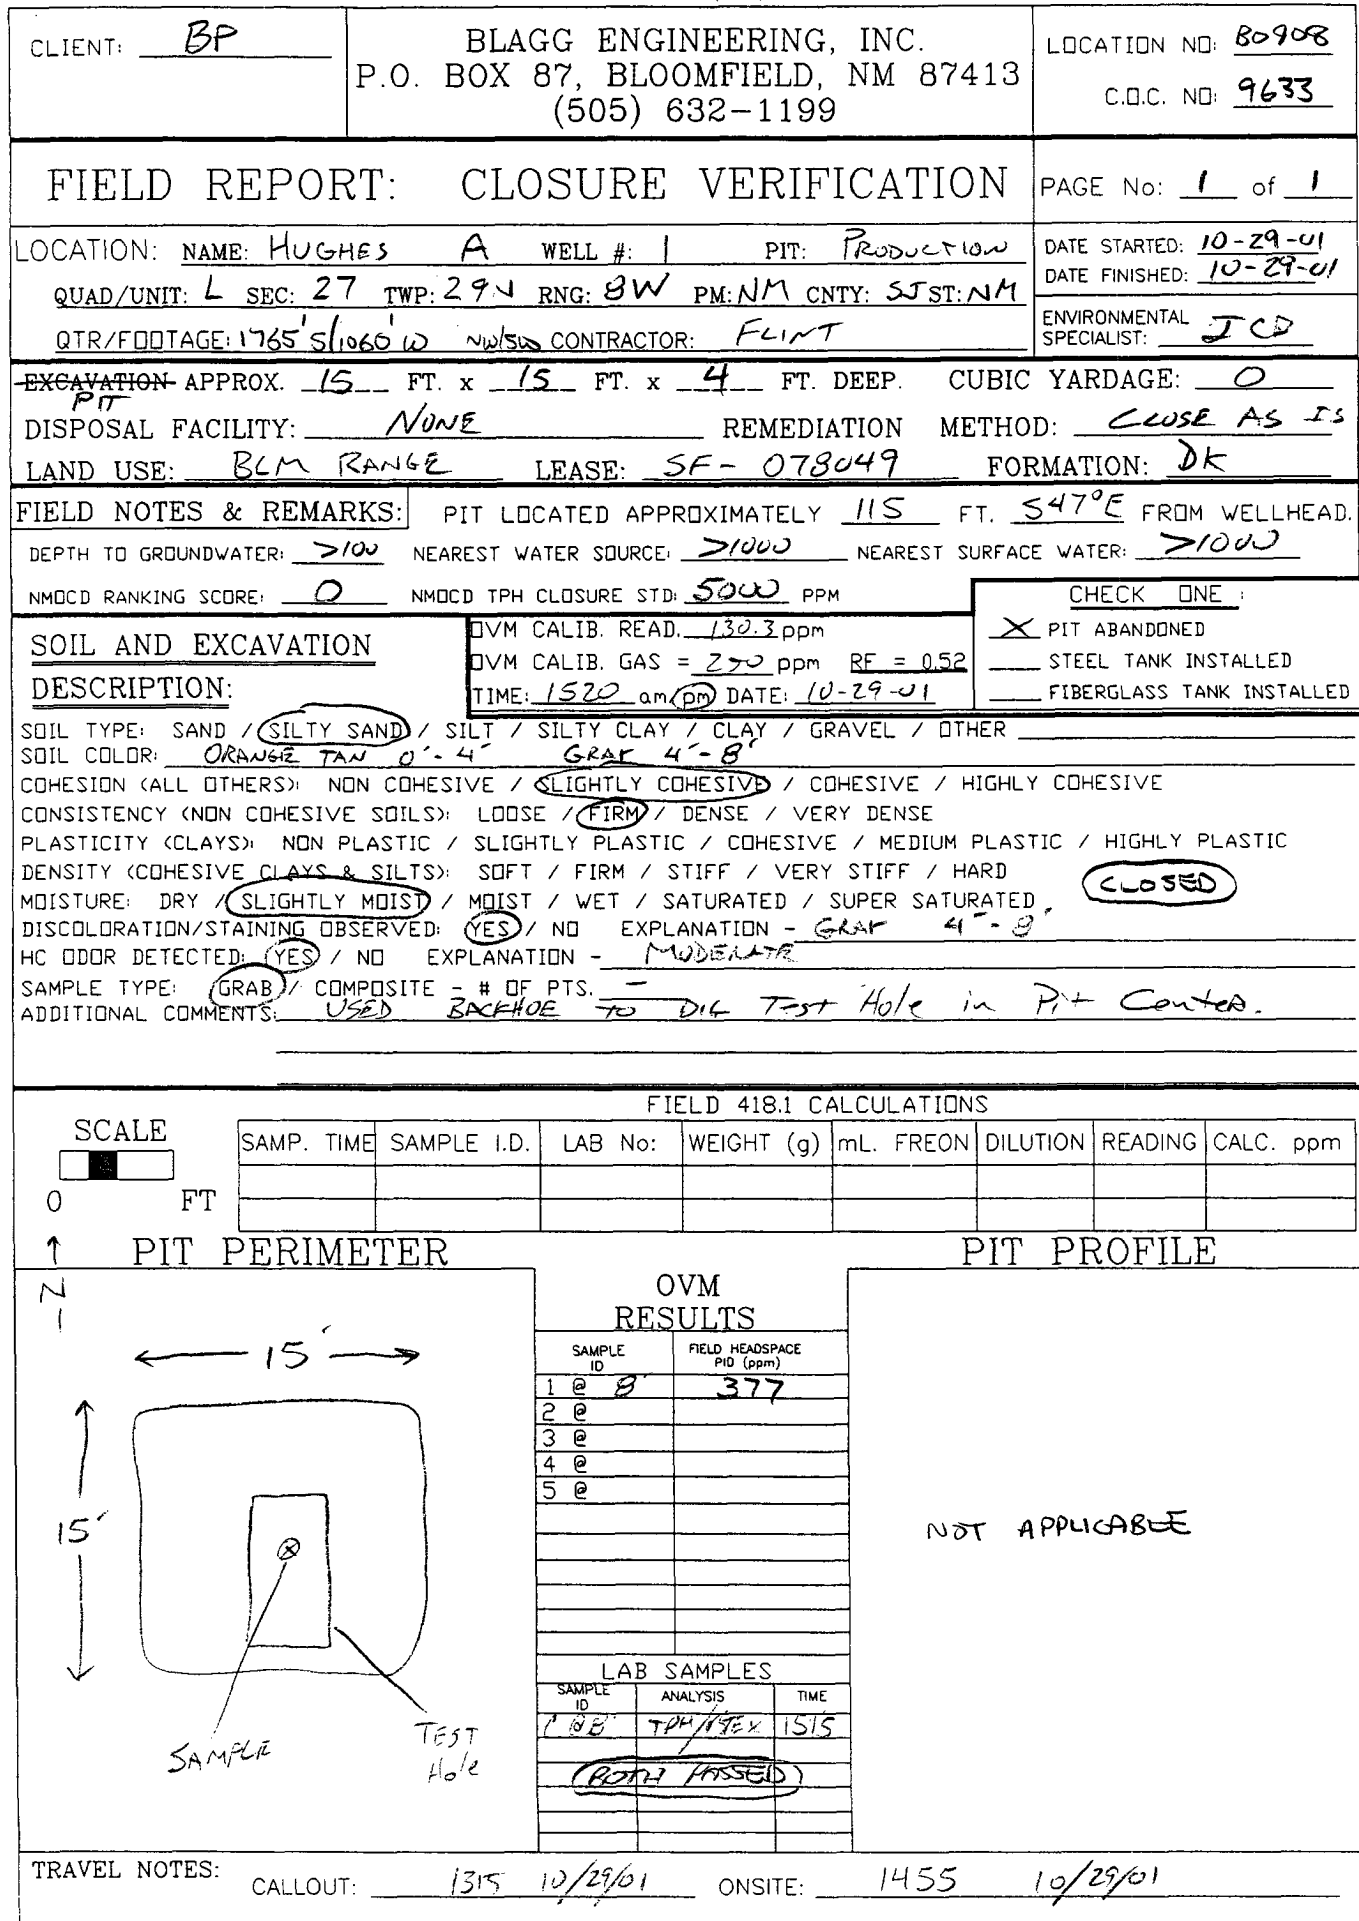 CLIENT: BP
BLAGG ENGINEERING, INC.
P.O. BOX 87, BLOOMFIELD, NM 87413
(505) 632-1199
LOCATION NO: B0908
C.O.C. NO: 9633
FIELD REPORT: CLOSURE VERIFICATION
PAGE No: 1 of 1
LOCATION: NAME: HUGHES A WELL #: 1 PIT: PRODUCTION
QUAD/UNIT: L SEC: 27 TWP: 29N RNG: 8W PM: NM CNTY: SJ ST: NM
QTR/FOOTAGE: 1765'S/1060'W NW/SW CONTRACTOR: FLINT
DATE STARTED: 10-29-01
DATE FINISHED: 10-29-01
ENVIRONMENTAL
SPECIALIST: JCB
EXCAVATION APPROX. 15 FT. x 15 FT. x 4 FT. DEEP. CUBIC YARDAGE: 0
PIT
DISPOSAL FACILITY: NONE REMEDIATION METHOD: CLOSE AS IS
LAND USE: BLM RANGE LEASE: SF-078049 FORMATION: DK
FIELD NOTES & REMARKS: PIT LOCATED APPROXIMATELY 115 FT. S47°E FROM WELLHEAD.
DEPTH TO GROUNDWATER: >100 NEAREST WATER SOURCE: >1000 NEAREST SURFACE WATER: >1000
NMOCD RANKING SCORE: 0 NMOCD TPH CLOSURE STD: 5000 PPM
CHECK ONE :
X PIT ABANDONED
STEEL TANK INSTALLED
FIBERGLASS TANK INSTALLED
SOIL AND EXCAVATION
DESCRIPTION:
OVM CALIB. READ. 130.3 ppm
OVM CALIB. GAS = 250 ppm RF = 0.52
TIME: 1520 am/pm DATE: 10-29-01
SOIL TYPE: SAND / SILTY SAND / SILT / SILTY CLAY / CLAY / GRAVEL / OTHER
SOIL COLOR: ORANGE TAN 0'-4' GRAY 4'-8'
COHESION (ALL OTHERS): NON COHESIVE / SLIGHTLY COHESIVE / COHESIVE / HIGHLY COHESIVE
CONSISTENCY (NON COHESIVE SOILS): LOOSE / FIRM / DENSE / VERY DENSE
PLASTICITY (CLAYS): NON PLASTIC / SLIGHTLY PLASTIC / COHESIVE / MEDIUM PLASTIC / HIGHLY PLASTIC
DENSITY (COHESIVE CLAYS & SILTS): SOFT / FIRM / STIFF / VERY STIFF / HARD
CLOSED
MOISTURE: DRY / SLIGHTLY MOIST / MOIST / WET / SATURATED / SUPER SATURATED
DISCOLORATION/STAINING OBSERVED: YES / NO EXPLANATION - GRAY 4'-8'
HC ODOR DETECTED: YES / NO EXPLANATION - MODERATE
SAMPLE TYPE: GRAB / COMPOSITE - # OF PTS. -
ADDITIONAL COMMENTS: USED BACKHOE TO DIG Test Hole in Pit Center.
FIELD 418.1 CALCULATIONS
SCALE
0 FT
SAMP. TIME SAMPLE I.D. LAB No: WEIGHT (g) mL. FREON DILUTION READING CALC. ppm
PIT PERIMETER
PIT PROFILE
N
15'
15'
SAMPLE
TEST
Hole
OVM
RESULTS
SAMPLE ID FIELD HEADSPACE PID (ppm)
1 @ 8' 377
2 @
3 @
4 @
5 @
LAB SAMPLES
SAMPLE ID ANALYSIS TIME
1 @ 8' TPH/BTEX 1515
BOTH PASSED
NOT APPLICABLE
TRAVEL NOTES: CALLOUT: 1315 10/29/01 ONSITE: 1455 10/29/01